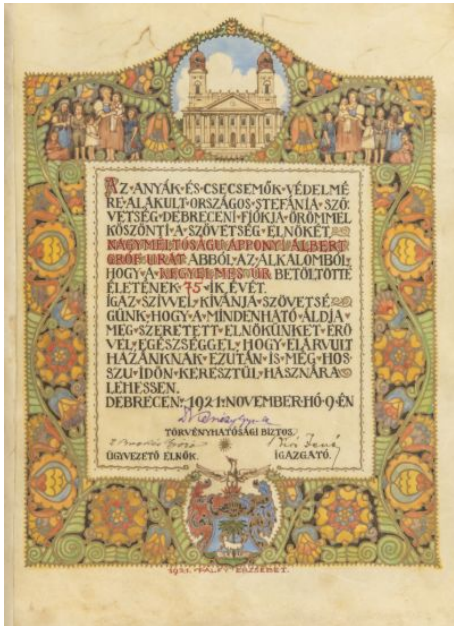 AZ·ANYÁK·ÉS·CSECSEMŐK·VÉDELMÉ
RE·ALAKULT·ORSZÁGOS·STEFÁNIA·SZÖ
VETSÉG·DEBRECENI·FIÓKJA·ÖRÖMMEL
KÖSZÖNTI·A·SZÖVETSÉG·ELNÖKÉT,
NAGYMÉLTÓSÁGU·APPONYI·ALBERT
GRÓF·URAT·ABBÓL·AZ·ALKALOMBÓL,
HOGY·A·KEGYELMES·ÚR·BETÖLTÖTTE
ÉLETÉNEK·75·IK·ÉVÉT.
IGAZ·SZÍVVEL·KÍVÁNJA·SZÖVETSÉ
GÜNK·HOGY·A·MINDENHATÓ·ÁLDJA
MEG·SZERETETT·ELNÖKÜNKET·ERŐ
VEL,·EGÉSZSÉGGEL,·HOGY·ELÁRVULT
HAZÁNKNAK·EZUTÁN·IS·MÉG·HOS
SZU·IDŐN·KERESZTÜL·HASZNÁRA
LEHESSEN.
DEBRECEN,·1921·NOVEMBER·HÓ·9·ÉN
TÖRVÉNYHATÓSÁGI BIZTOS.
ÜGYVEZETŐ ELNÖK. IGAZGATÓ.
1921. PÁLFY ERZSÉBET.